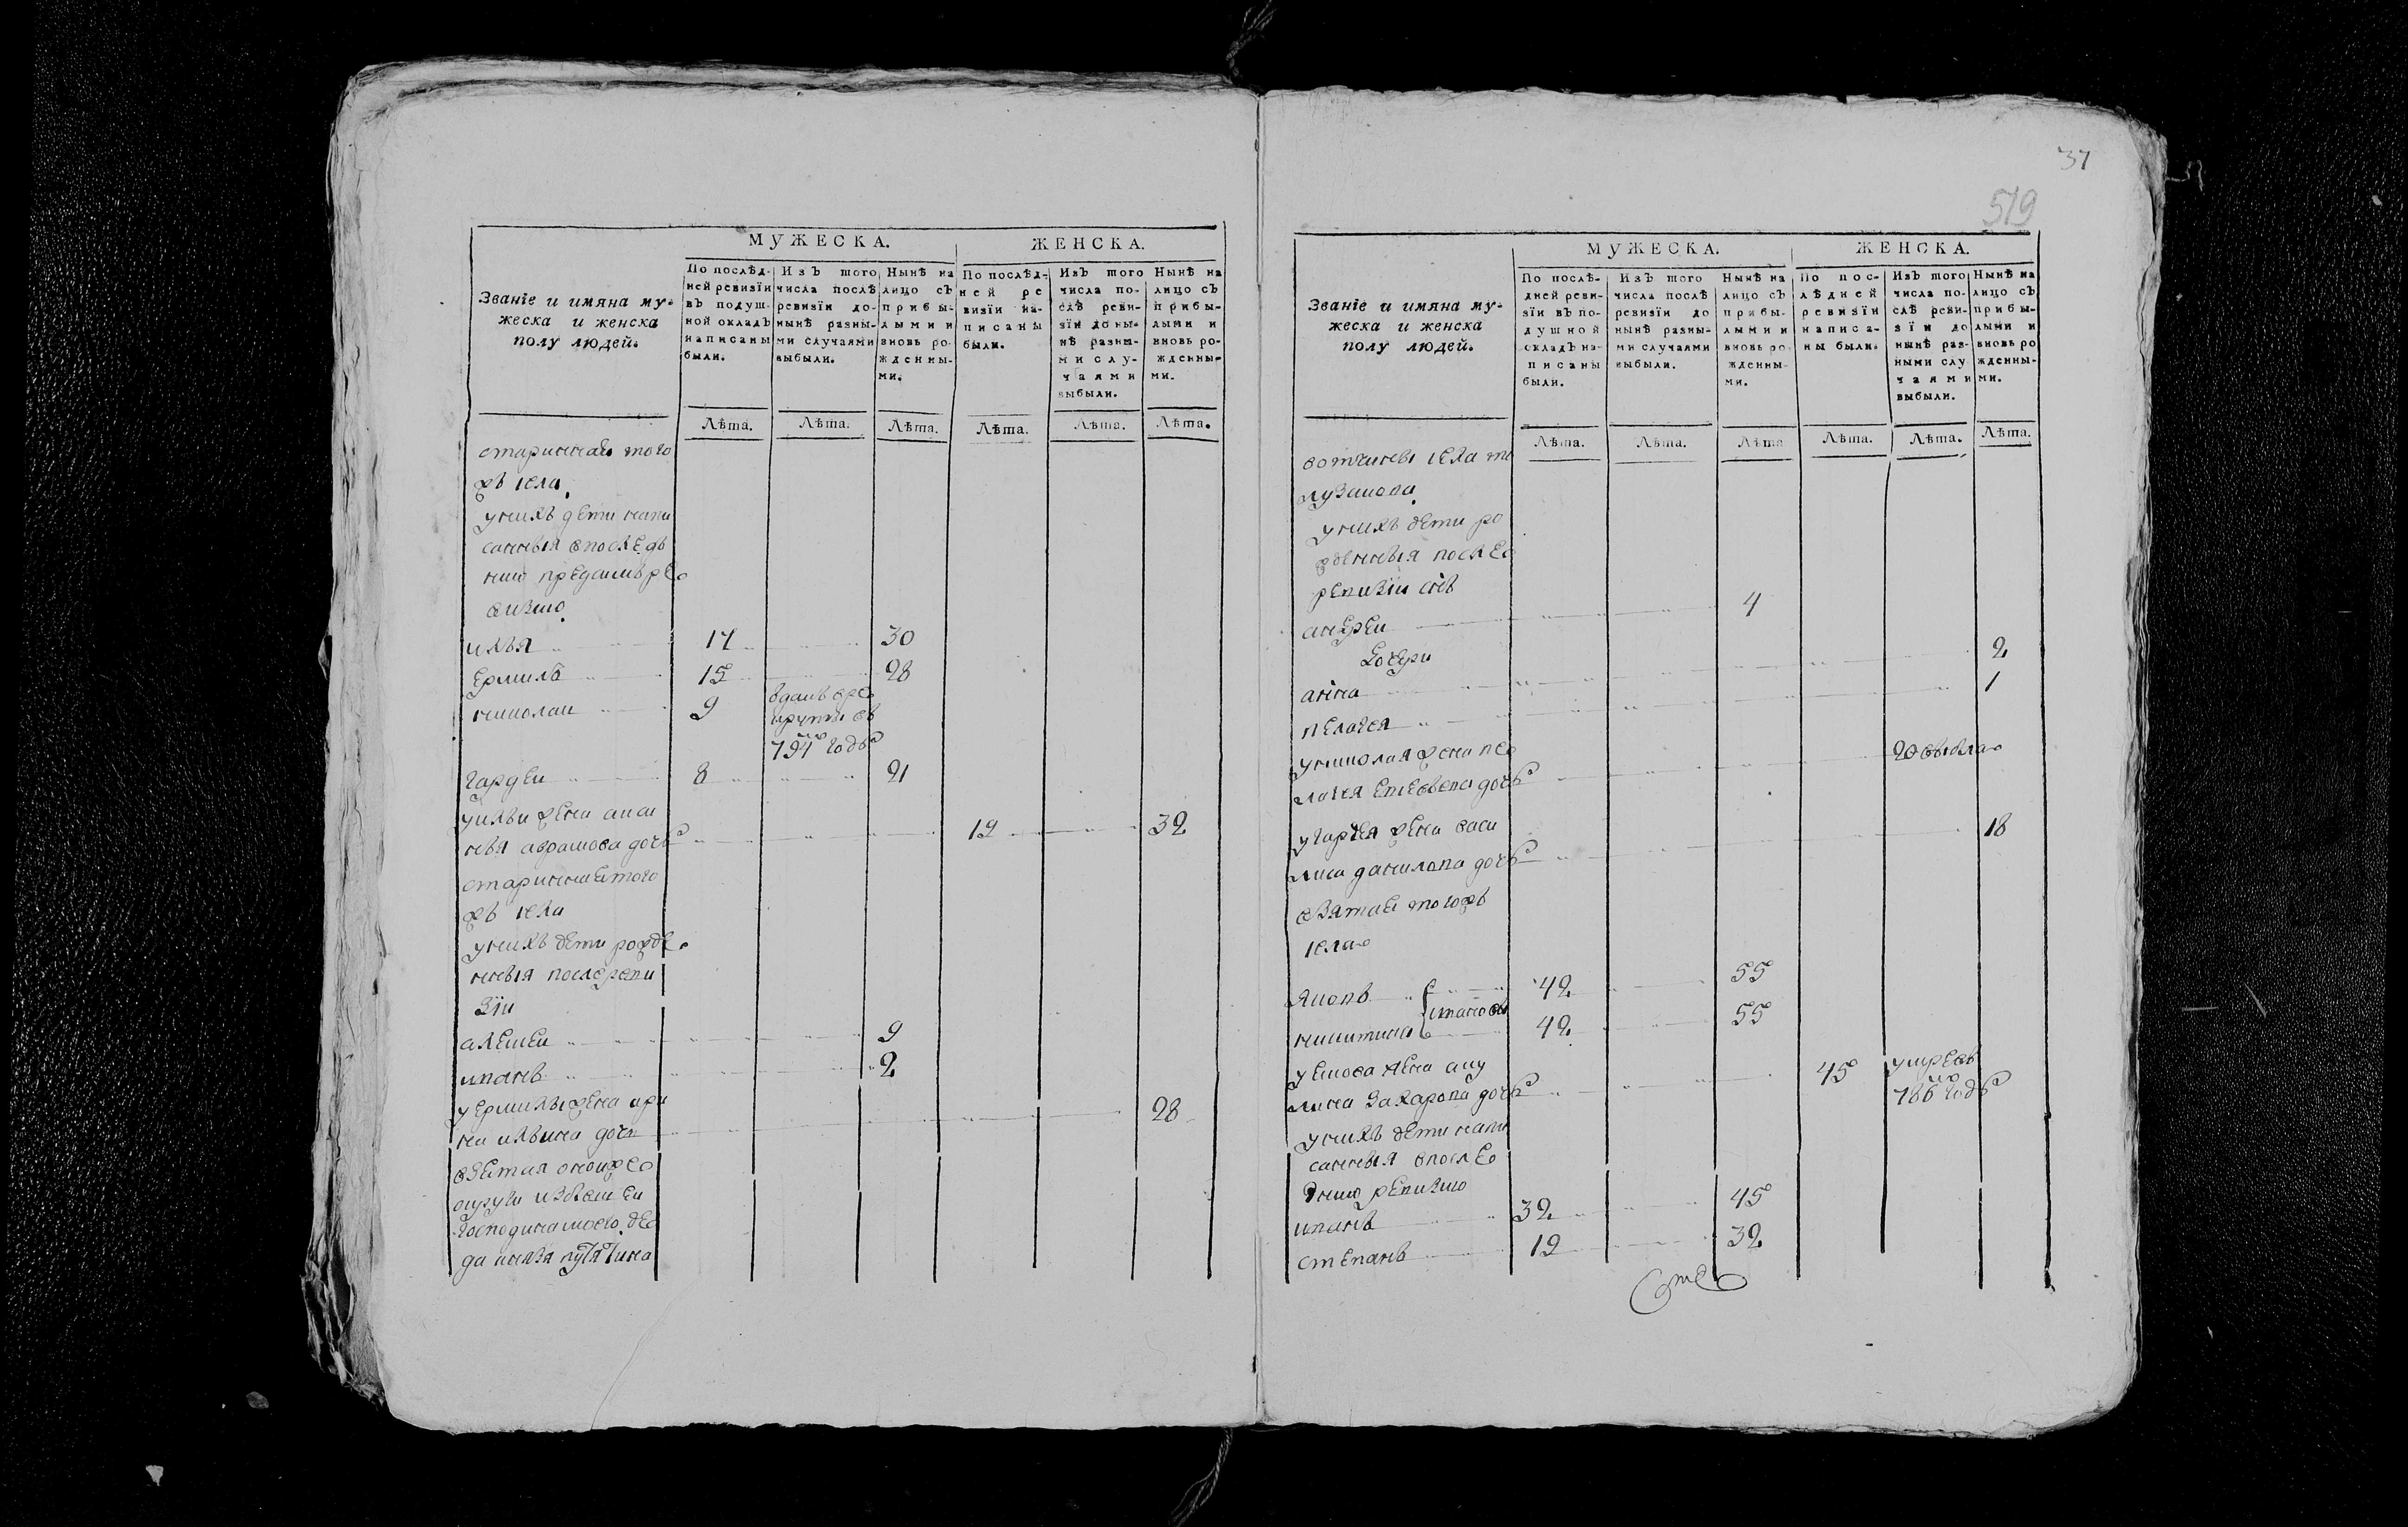 МУЖЕСКА. ЖЕНСКА.
Званіе и имяна му-
жеска и женска
полу людей.
По послѣд-
ней ревизіи
въ подуш-
ной окладъ
написаны
были.
Изъ того
числа послѣ
ревизіи до-
нынѣ разны-
ми случаями
выбыли.
Нынѣ на
лицо съ
прибы-
лыми и
вновь ро-
жденны-
ми.
По послѣд-
ней ре
визіи на-
писаны
были.
Изъ того
числа по-
слѣ реви-
зіи до ны-
нѣ разны-
ми слу-
чаями
выбыли.
Нынѣ на
лицо съ
прибы-
лыми и
вновь ро-
жденны-
ми.
Лѣта. Лѣта. Лѣта. Лѣта. Лѣта. Лѣта.
старинная того
жъ села
уних дети напи
санныя впоследь
нию предшъ ре
визию
илья 17 30
Ермилъ 15 28
николаи 9 вданъ вре
круты въ
794м годе
гардеи 8 21
уильи жена анси
нья аврамова дочь 19 32
стариннай того
жъ села
унихъ дети рожде
нныя послеревы
зїи
алексеи 9
иванъ 2
уЕрмилы жена ири
на ильина дочь 28
взятая оноиже
округи извотчи
господина моего де
да князя путятина
37
519
МУЖЕСКА. ЖЕНСКА.
Званіе и имяна му-
жеска и женска
полу людей.
По послѣ-
дней реви-
зіи въ по-
душной
окладъ на-
писаны
были.
Изъ того
числа послѣ
ревизіи до
нынѣ разны-
ми случаями
выбыли.
Нынѣ на
лицо съ
прибы-
лыми и
вновь ро-
жденны-
ми.
По пос-
лѣдней
ревизіи
написа-
ны были.
Изъ того
числа по-
слѣ реви-
зіи до
нынѣ раз-
ными слу
чаями
выбыли.
Нынѣ на
лицо съ
прибы-
лыми и
вновь ро
жденны-
ми.
Лѣта. Лѣта. Лѣта Лѣта. Лѣта. Лѣта.
вотчины села
лузанова
унихъ дети ро
жденныя после
ревизїи снъ
андреи 4
дочери
анна 2
пелагея 1
униколая жена пе
лагея дочь выбыла
угардея жена васи
лиса данилова дочь 18
взятая тогожъ
села
яковъ 42 55
никитина 42 55
уякова жена аку
лина Захарова дочь 45 умре въ
786м годе
унихъ дети напи
санныя впосле
днию ревизию
иванъ 32 45
степанъ 19 32